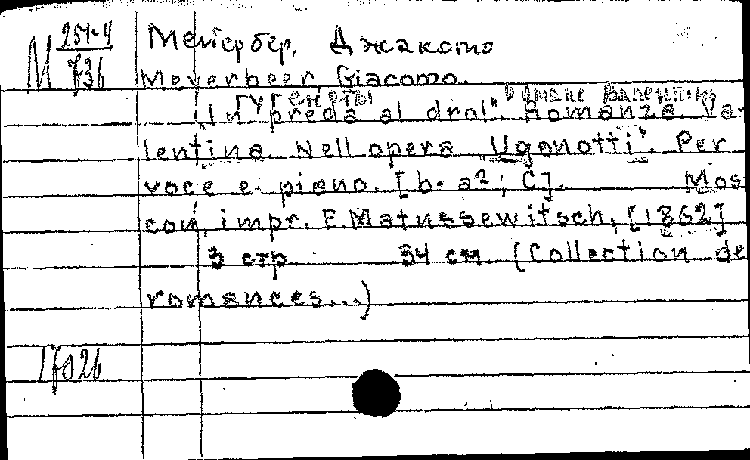 М 254-4
736
Мейербер, Джакомо
Meyerbeer, Giacomo.
Гугеноты Романс Валентины
"In preda al dral". Romanza. Va-
lentina. Nell opera "Ugonotti". Per
voce e piano. [b-a²; C]. Mos-
cou, impr. E. Matussewitsch, [1862]
3 стр. 34 см. (Collection de
romances...)
17026